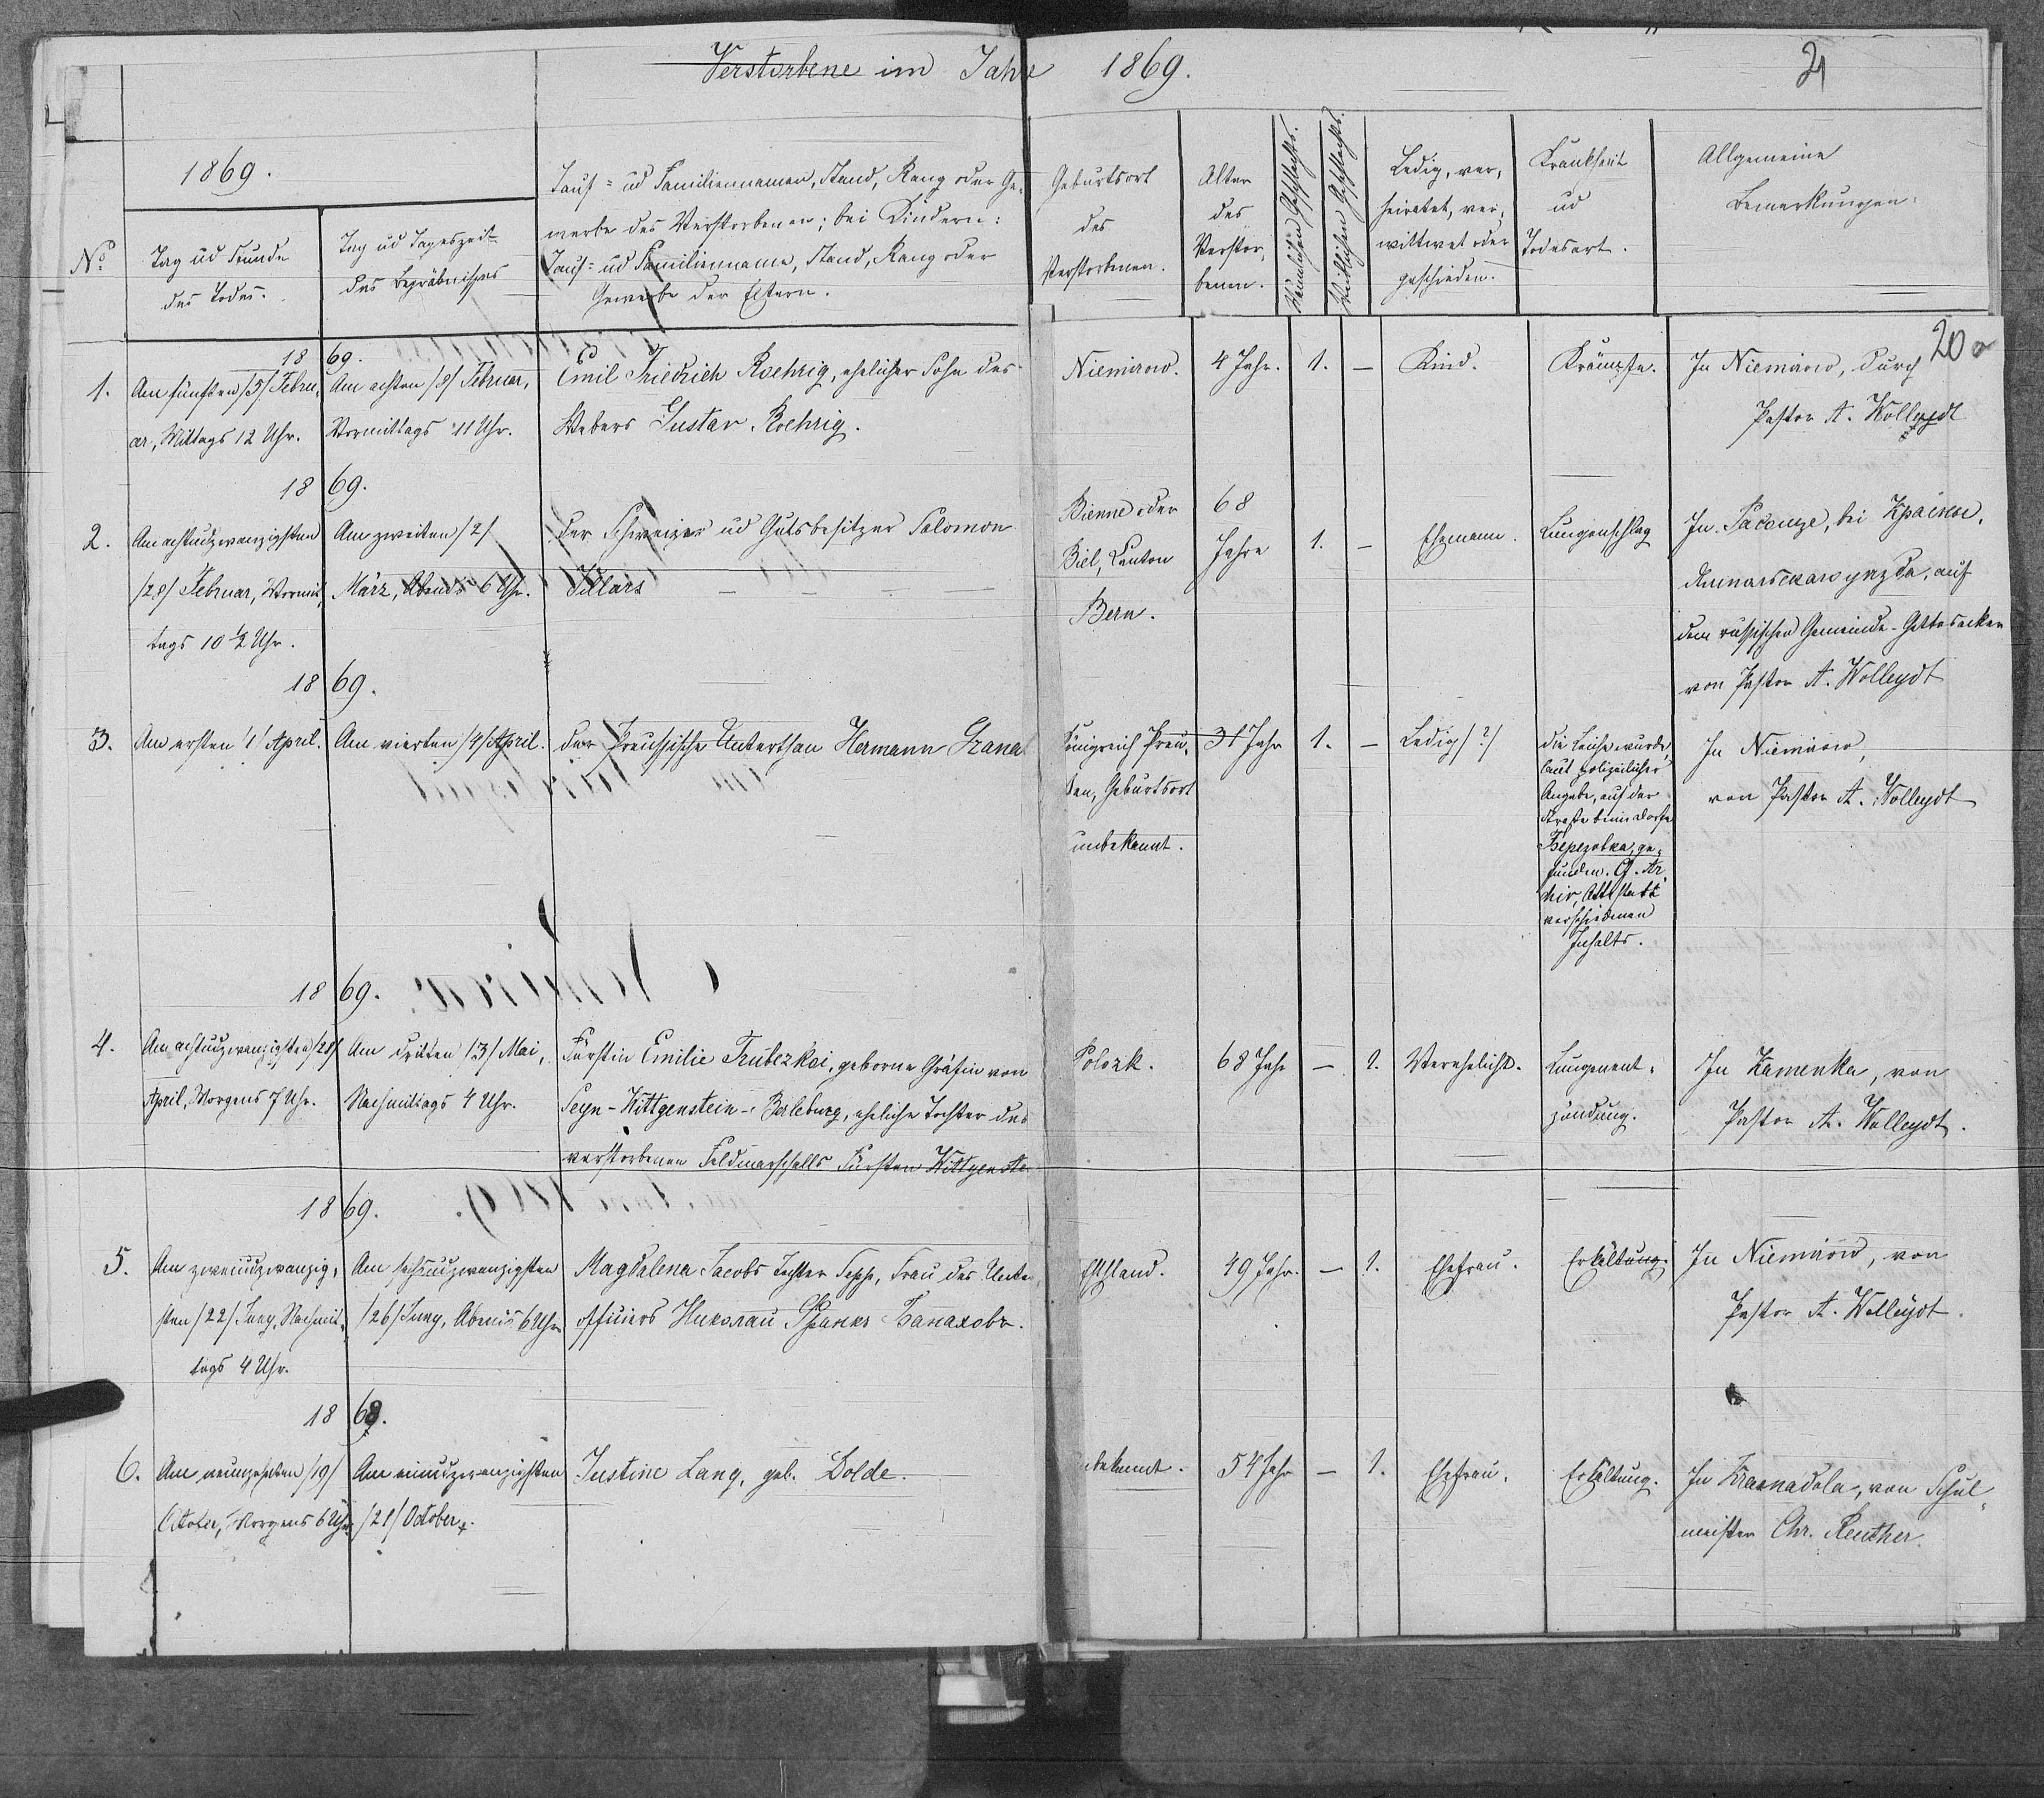 Verstorbene im Jahre 1869.
21
1869.
No
Tag ud Stunde
des Todes.
Tag ud Tageszeit
des Begräbnisses
Tauf= ud Familiennamen, Stand, Rang oder Ge-
werbe des Verstorbenen; bei Kindern:
Tauf= ud Familienname, Stand, Rang oder
Gewerbe der Eltern.
Geburtsort
des
Verstorbenen.
Alter
des
Verstor-
benen.
Männlichen Geschlechts.
Weiblichen Geschlechts.
Ledig, ver-
heiratet, ver-
wittwet oder
geschieden.
Krankheit
ud
Todesart.
Allgemeine
Bemerkungen.
20
1869.
1.
Am fünften /5/ Febru-
ar, Mittags 12 Uhr.
Am achten /8/ Februar,
Vormittags 11 Uhr.
Emil Friedrich Roehrig, ehelicher Sohn des
Webers Gustav Roehrig.
Niemirow.
4 Jahr.
1.
—
Kind.
Krämpfe.
In Niemirow, durch
Pastor A. Wolleydt
1869.
2.
Am achtudzwanzigsten
/28/ Februar, Vormit-
tags 10 ½ Uhr.
Am zweiten /2/
März, Abends 6 Uhr.
Der Schweizer ud Gutsbesitzer Salomon
Villars
Bienne oder
Biel, Canton
Bern.
68
Jahre
1.
—
Ehemann.
Lungenschlag
In
bei
auf
dem russischen Gemeinde-Gottesacker
von Pastor A. Wolleydt
1869.
3.
Am ersten /1/ April.
Am vierten /4/ April.
Der Preussische Unterthan Hermann
Königreich Preu-
ßen, Geburtsort
unbekannt.
31 Jahr
1.
—
Ledig /?/
Die Leiche wurde,
laut polizeilicher
Angabe, auf der
Straße beim Dorfe
Березовка, ge-
funden. Cf. Ar-
chiv, Attestate
verschiedenen
Inhalts.
In Niemirow,
von Pastor A. Wolleydt
1869.
4.
Am achtudzwanzigsten /28/
April, Morgens 7 Uhr.
Am dritten /3/ Mai,
Nachmittags 4 Uhr.
Fürstin Emilie Trubezkoi, geborne Gräfin von
Seyn-Wittgenstein-Berleburg, eheliche Tochter des
verstorbenen Feldmarschalls Fürsten Wittgenste
Polozk.
68 Jahr
—
1.
Verehelicht.
Lungenent-
zündung.
In Kamenka, von
Pastor A. Wolleydt.
1869.
5.
Am zweiudzwanzig-
sten /22/ Juny, Nachmit-
tags 4 Uhr.
Am sechsudzwanzigsten
/26/ Juny, Abends 6 Uhr
Magdalena Jacobs Tochter Sepp, Frau des Unter-
officiers Николай Франкъ Банаховъ.
Esthland.
49 Jahr.
—
1.
Ehefrau.
Erkältung.
In Niemirow, von
Pastor A. Wolleydt.
1869.
6.
Am neunzehnten /19/
October, Morgens 6 Uhr
Am einudzwanzigsten
/21/ October.
Justine Lang, geb. Dolde.
Unbekannt.
54 Jahr
—
1.
Ehefrau.
Erkältung.
In von Schul-
meister Chr. Reuther.